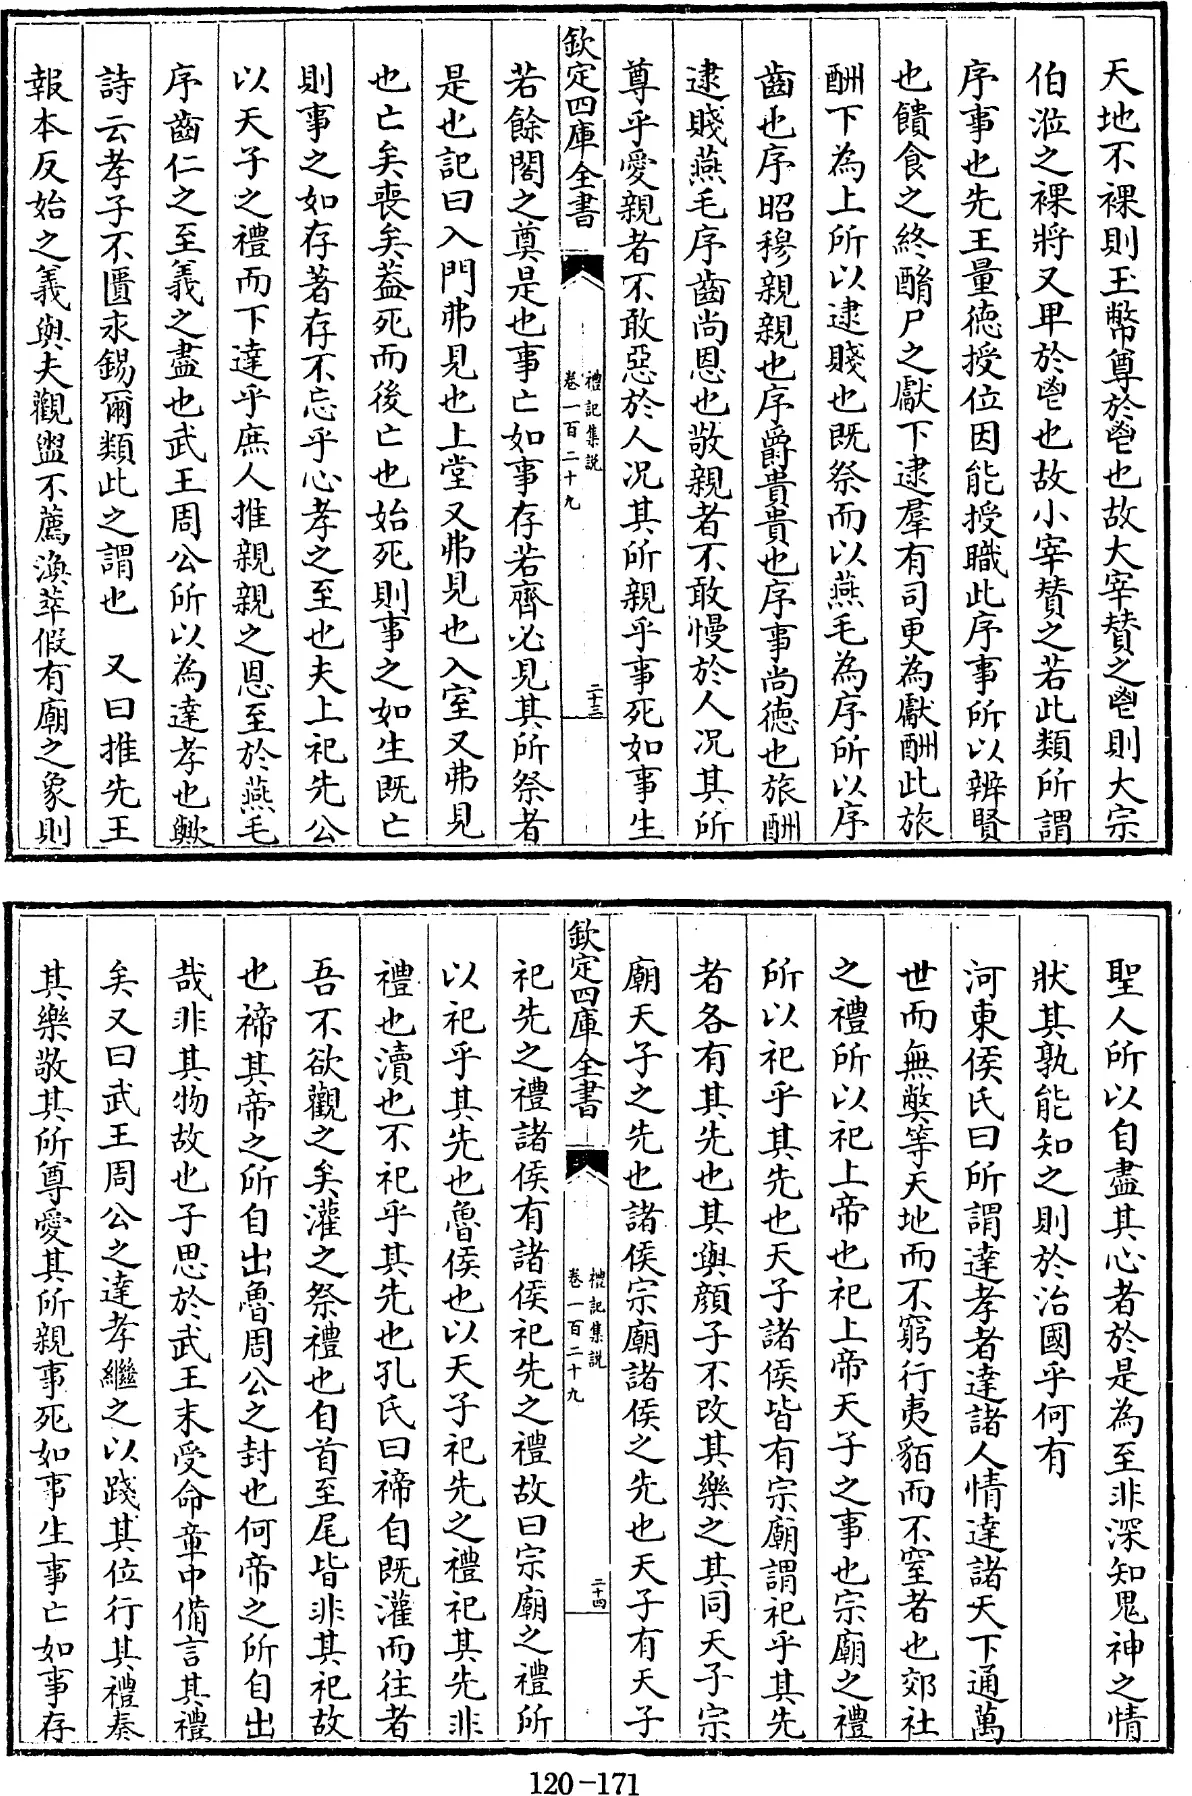 天地不祼則玉幣尊於鬯也故大宰賛之鬯則大宗
伯涖之祼將又卑於鬯也故小宰賛之若此類所謂
序事也先王量徳授位因能授職此序事所以辨賢
也饋食之終酳尸之獻下逮羣有司更為獻酬此旅
酬下為上所以逮賤也既祭而以燕毛為序所以序
齒也序昭穆親親也序爵貴貴也序事尚徳也旅酬
逮賤燕毛序齒尚恩也敬親者不敢慢於人况其所
尊乎愛親者不敢惡於人况其所親乎事死如事生
欽定四庫全書
禮記集説
卷一百二十九
二十三
若餘閣之奠是也事亡如事存若齊必見其所祭者
是也記曰入門弗見也上堂又弗見也入室又弗見
也亡矣喪矣葢死而後亡也始死則事之如生既亡
則事之如存著存不忘乎心孝之至也夫上祀先公
以天子之禮而下達乎庶人推親親之恩至於燕毛
序齒仁之至義之盡也武王周公所以為達孝也歟
詩云孝子不匱永錫爾類此之謂也　又曰推先王
報本反始之義與夫觀盥不薦渙萃假有廟之象則
聖人所以自盡其心者於是為至非深知鬼神之情
狀其孰能知之則於治國乎何有
河東侯氏曰所謂達孝者達諸人情達諸天下通萬
世而無獘等天地而不窮行夷貊而不窒者也郊社
之禮所以祀上帝也祀上帝天子之事也宗廟之禮
所以祀乎其先也天子諸侯皆有宗廟謂祀乎其先
者各有其先也其與顔子不改其樂之其同天子宗
廟天子之先也諸侯宗廟諸侯之先也天子有天子
欽定四庫全書
禮記集説
卷一百二十九
二十四
祀先之禮諸侯有諸侯祀先之禮故曰宗廟之禮所
以祀乎其先也魯侯也以天子祀先之禮祀其先非
禮也瀆也不祀乎其先也孔氏曰禘自既灌而往者
吾不欲觀之矣灌之祭禮也自首至尾皆非其祀故
也禘其帝之所自出魯周公之封也何帝之所自出
哉非其物故也子思於武王末受命章中備言其禮
矣又曰武王周公之達孝繼之以踐其位行其禮奏
其樂敬其所尊愛其所親事死如事生事亡如事存
120-171